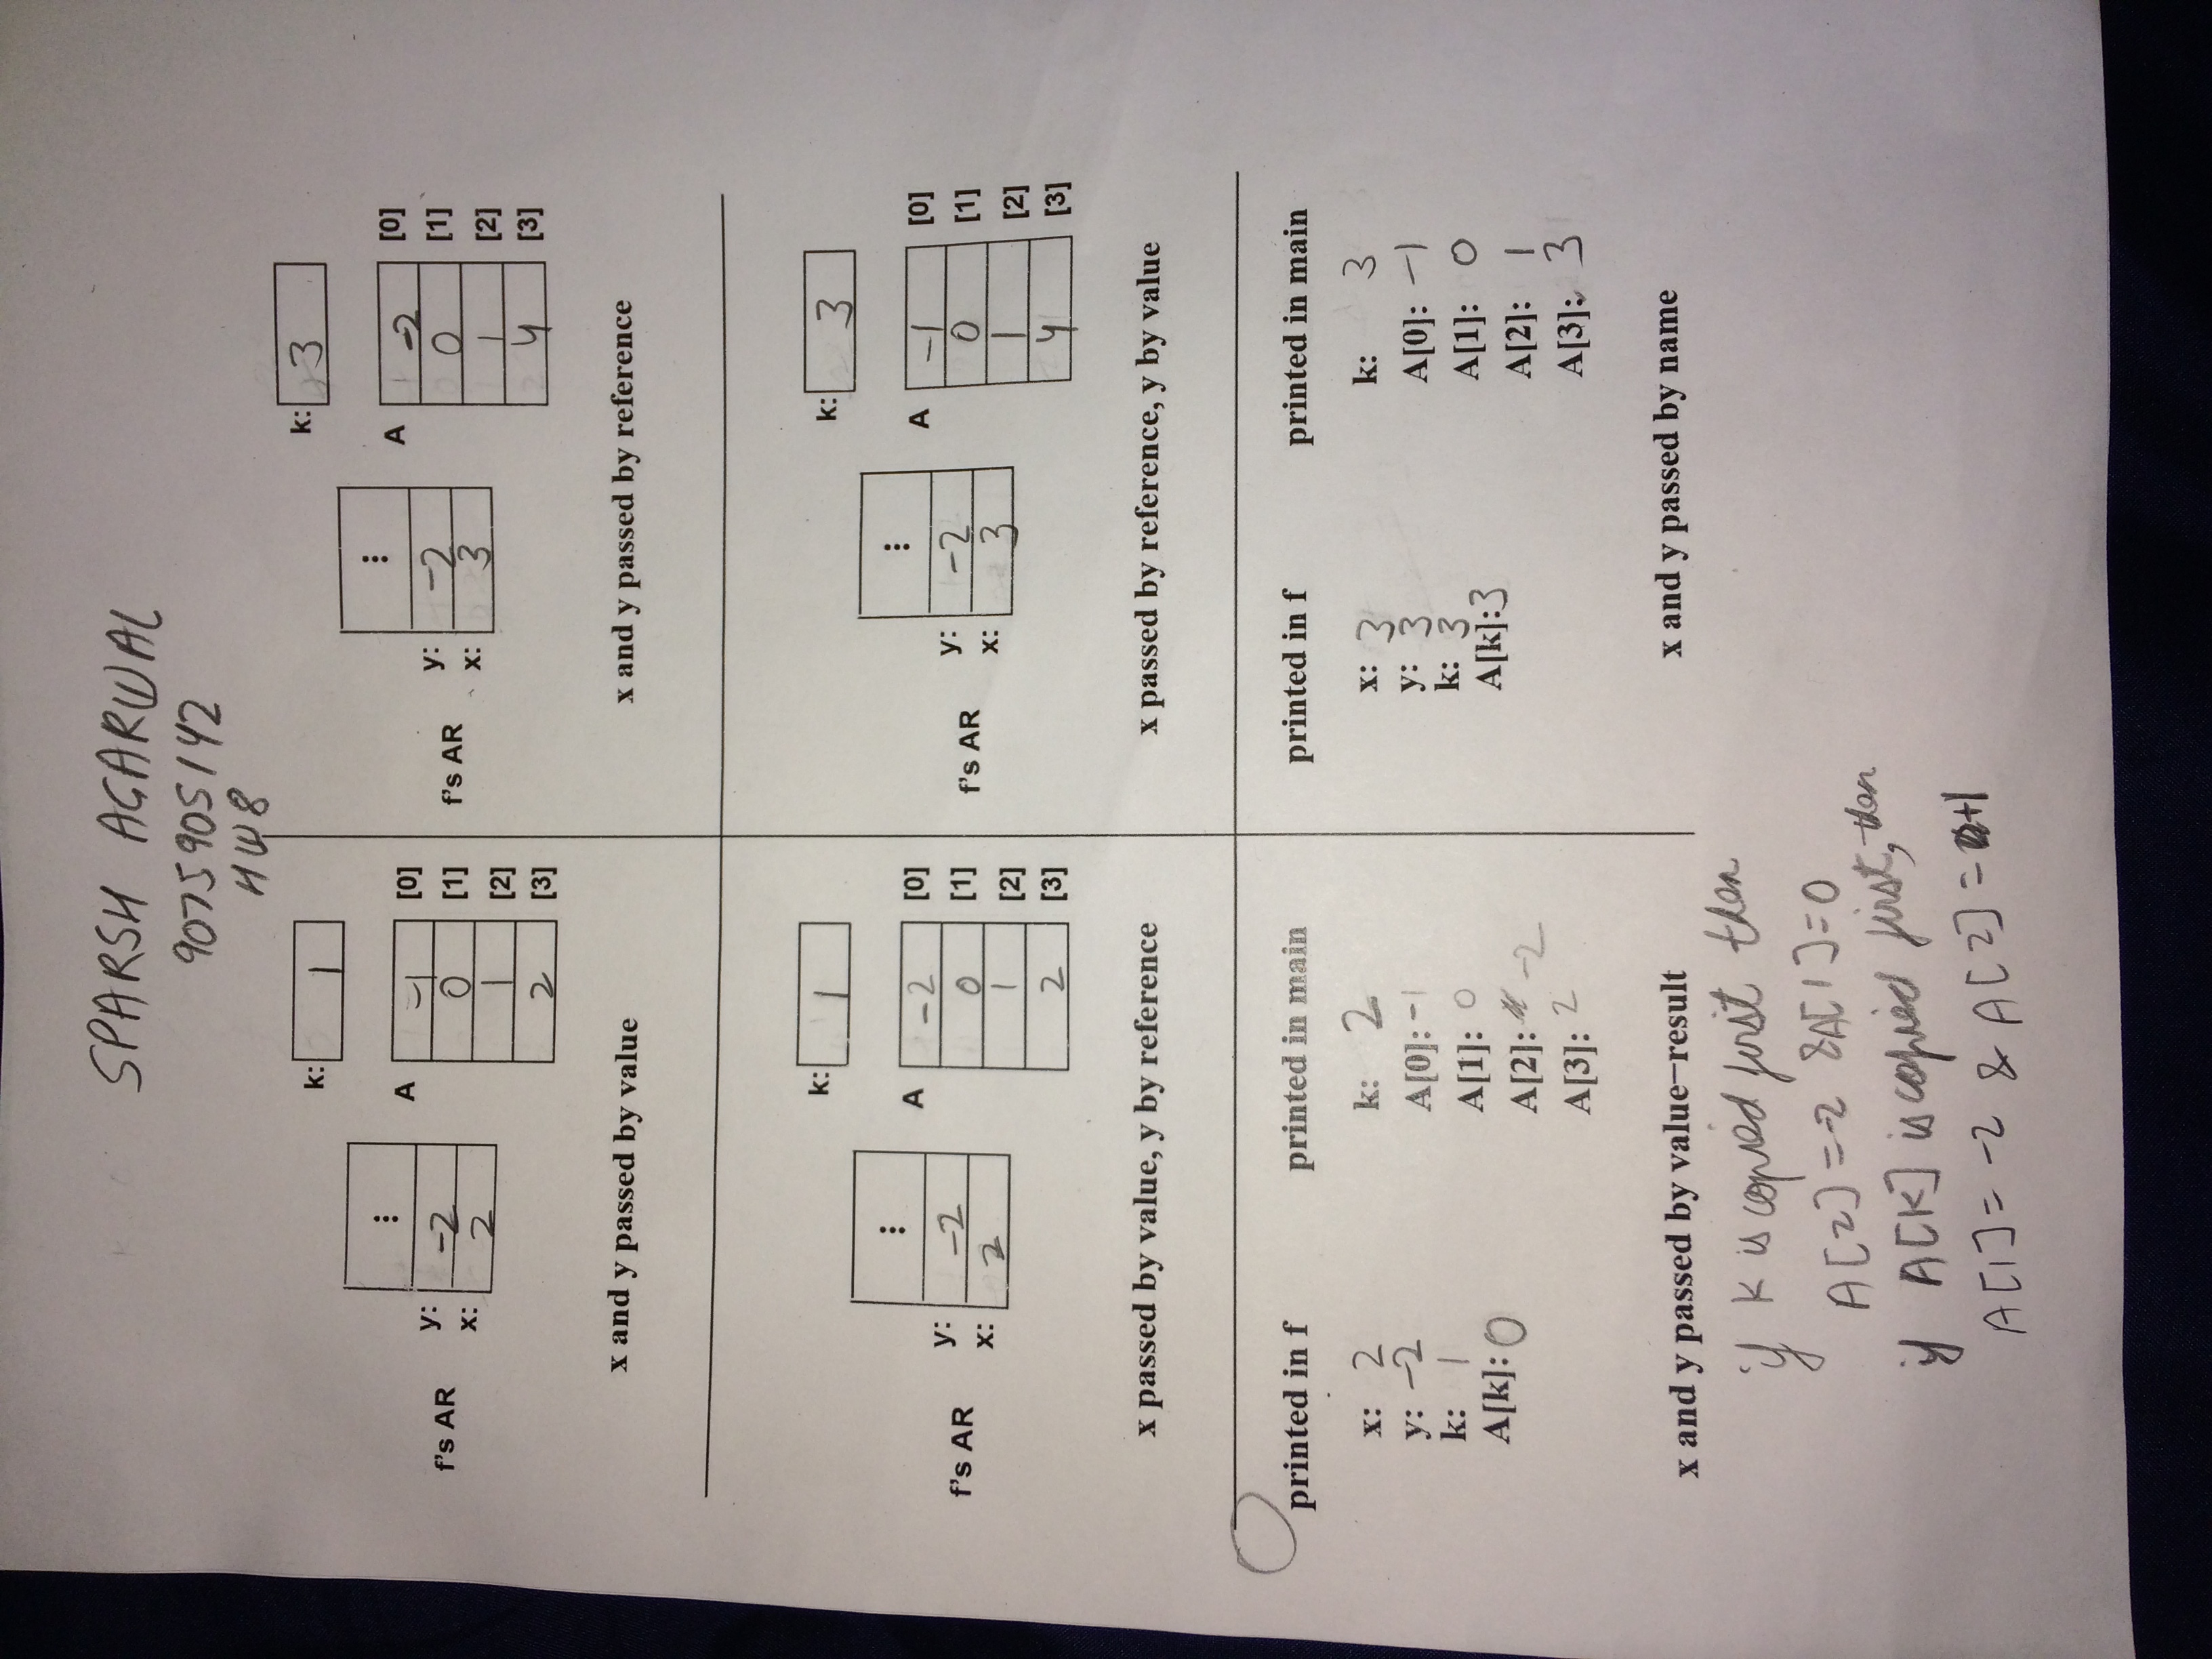 SPARSH AGARWAL
9075905142
HW8
k: 1
f's AR
y: -2
x: 2
A
-1 [0]
0 [1]
1 [2]
2 [3]
x and y passed by value
k: 3
f's AR
y: -2
x: 3
A
-2 [0]
0 [1]
1 [2]
4 [3]
x and y passed by reference
k: 1
f's AR
y: -2
x: 2
A
-2 [0]
0 [1]
1 [2]
2 [3]
x passed by value, y by reference
k: 3
f's AR
y: -2
x: 3
A
-1 [0]
0 [1]
1 [2]
4 [3]
x passed by reference, y by value
printed in f
x: 2
y: -2
k: 1
A[k]: 0
printed in main
k: 2
A[0]: -1
A[1]: 0
A[2]: -2
A[3]: 2
x and y passed by value-result
if K is copied first then
A[2]=-2 & A[1]=0
if A[K] is copied first, then
A[1]= -2 & A[2] = +1
printed in f
x: 3
y: 3
k: 3
A[k]: 3
printed in main
k: 3
A[0]: -1
A[1]: 0
A[2]: 1
A[3]: 3
x and y passed by name